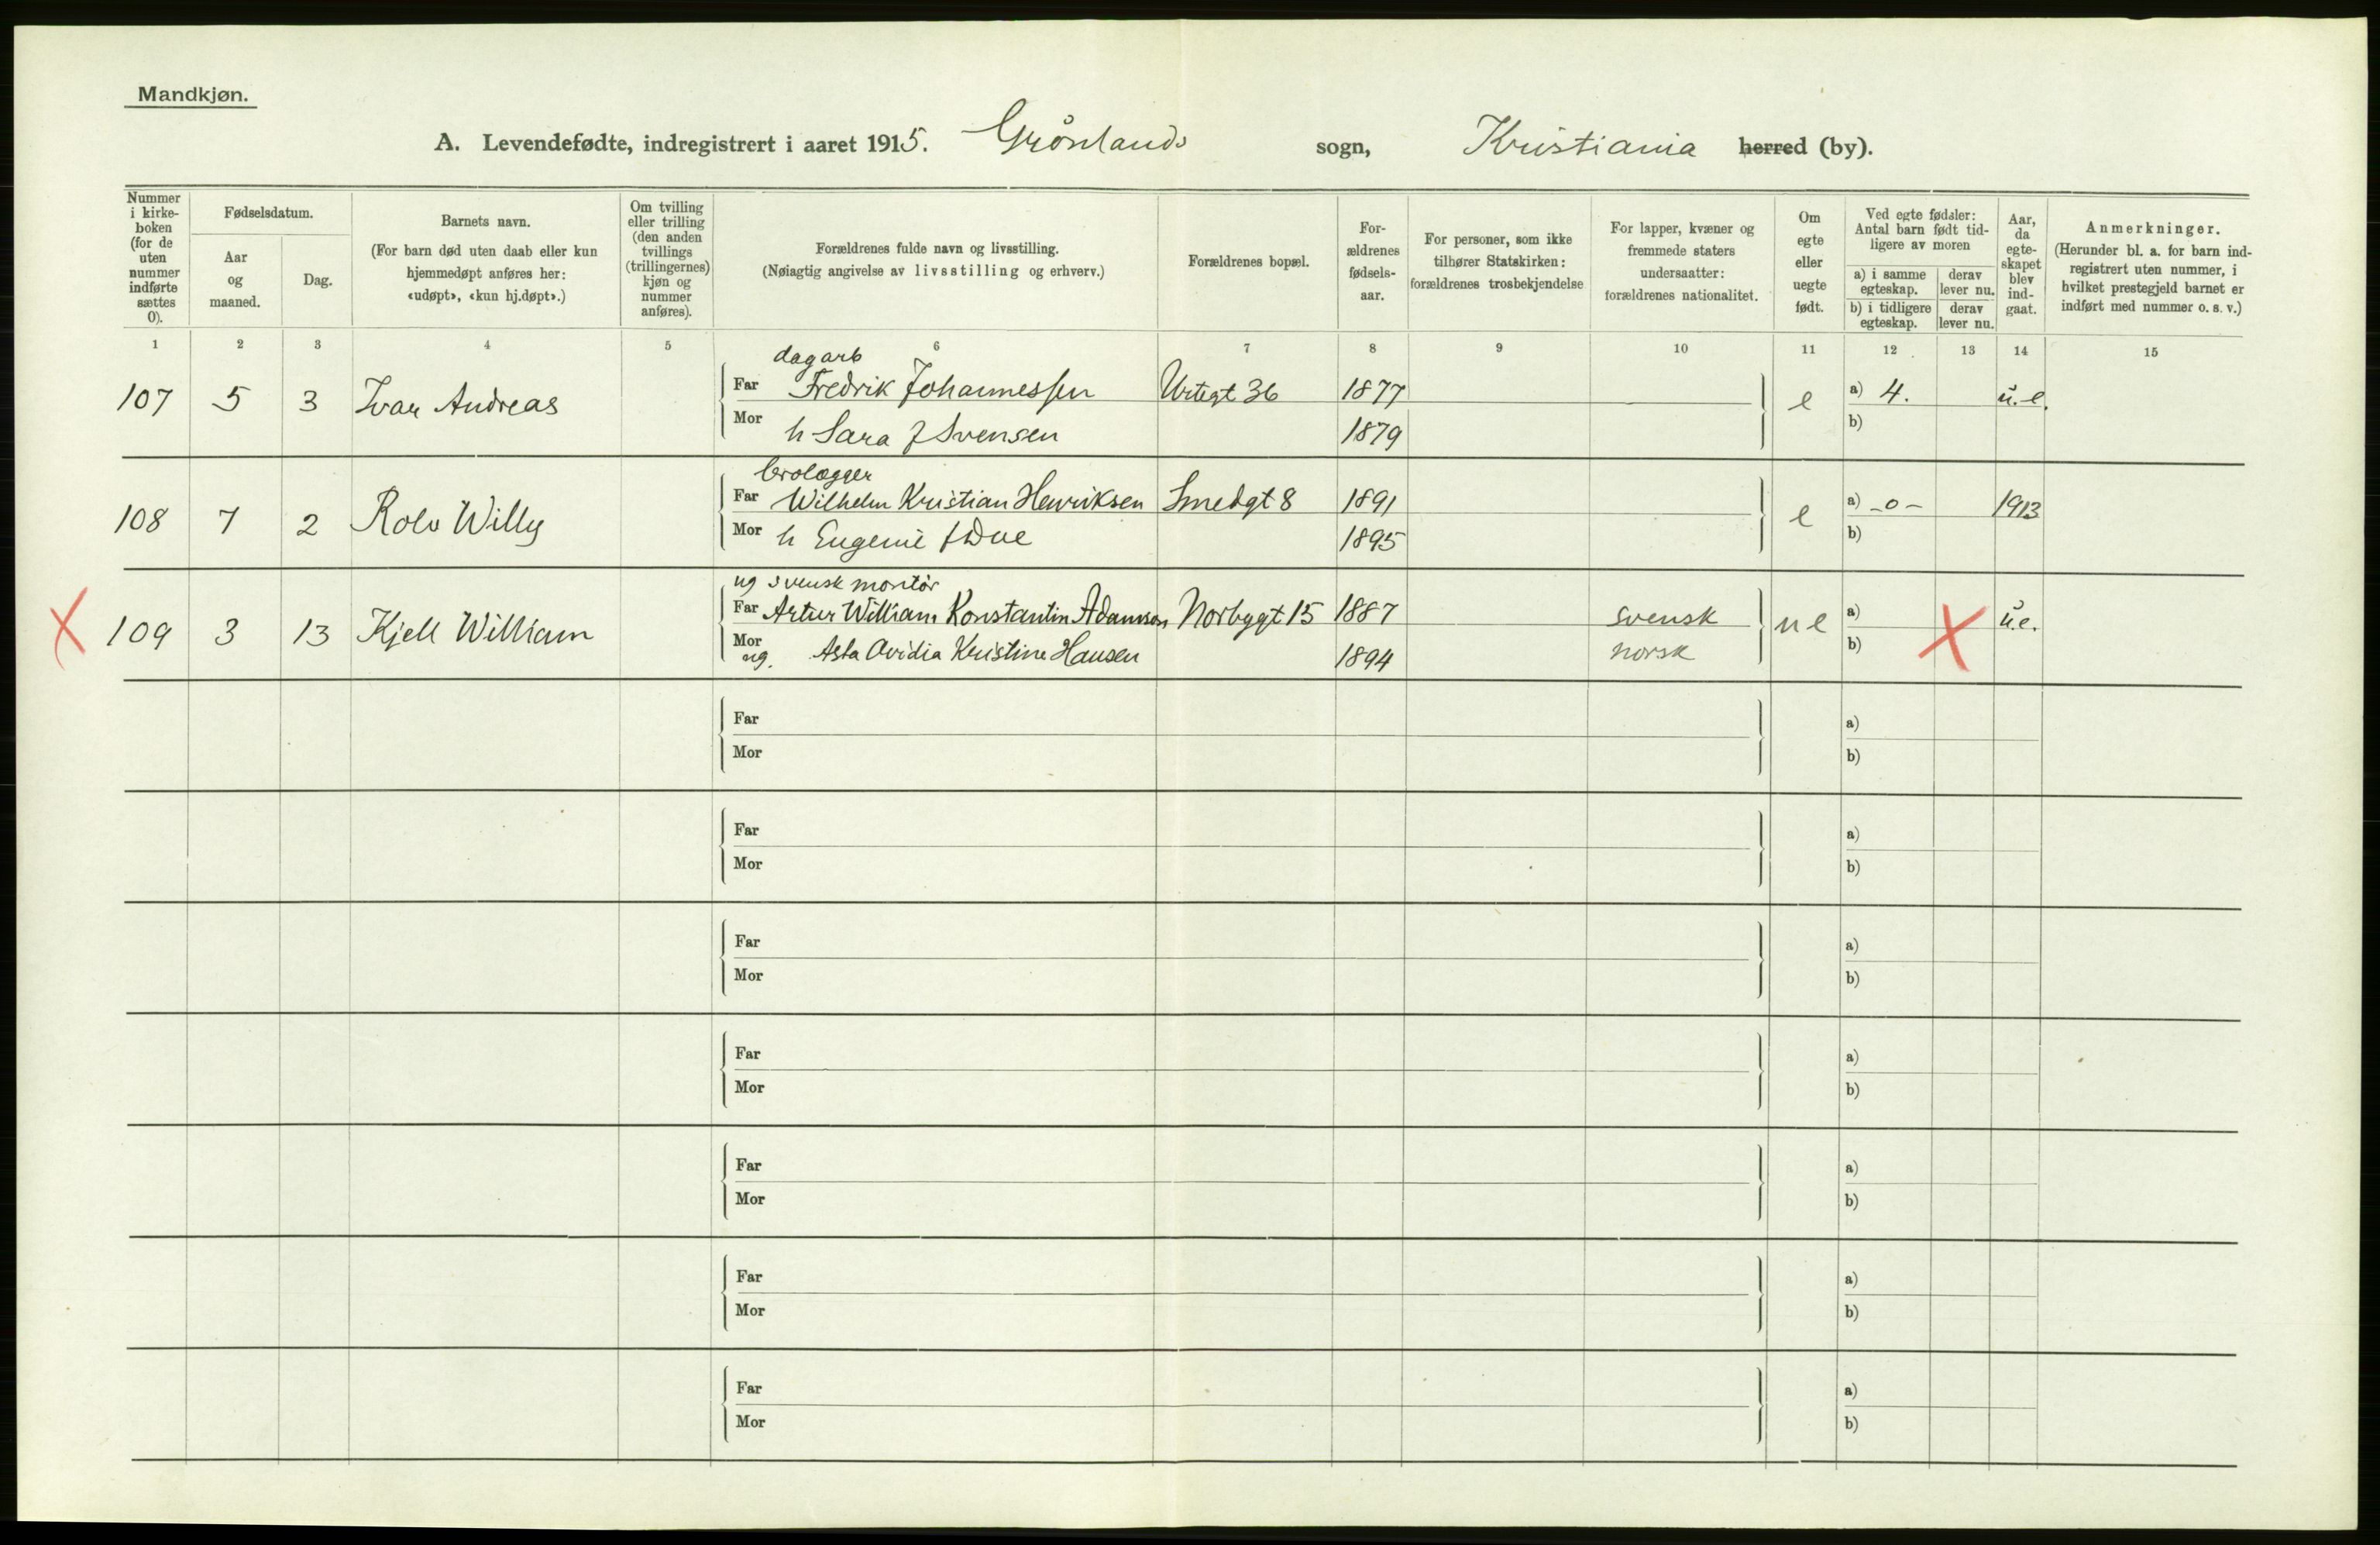 Mandkjøn.
A. Levendefødte, indregistrert i aaret 1915. Grønlands sogn, Kristiania herred (by).
Nummer i kirke-boken (for de uten nummer indførte sættes 0).
Fødselsdatum.
Aar og maaned.
Dag.
Barnets navn.
(For barn død uten daab eller kun hjemmedøpt anføres her: «udøpt», «kun hj.døpt».)
Om tvilling eller trilling (den anden tvillings (trillingernes) kjøn og nummer anføres).
Forældrenes fulde navn og livsstilling.
(Nøiagtig angivelse av livsstilling og erhverv.)
Forældrenes bopæl.
For-ældrenes fødsels-aar.
For personer, som ikke tilhører Statskirken: forældrenes trosbekjendelse
For lapper, kvæner og fremmede staters undersaatter: forældrenes nationalitet.
Om egte eller uegte født.
Ved egte fødsler: Antal barn født tid-ligere av moren
a) i samme egteskap.
derav lever nu.
b) i tidligere egteskap.
derav lever nu.
Aar, da egte-skapet blev ind-gaat.
Anmerkninger.
(Herunder bl. a. for barn ind-registrert uten nummer, i hvilket prestegjeld barnet er indført med nummer o. s. v.)
1 2 3 4 5 6 7 8 9 10 11 12 13 14 15
dagarb
107 5 3 Ivar Andreas Far Fredrik Johannessen Urtegt 36 1877 e a) 4. u.e.
Mor h Sara f Svensen 1879 b)
brolægger
108 7 2 Rolv Willy Far Wilhelm Kristian Henriksen Smedgt 8 1891 e a) -0- 1913
Mor h Eugenie f Due 1895 b)
ug svensk montør
X 109 3 13 Kjell William Far Artur William Konstantin Adamson Norbygt 15 1887 svensk ue a) X u.e.
Mor ug. Asta Ovidia Kristine Hansen 1894 norsk b)
Far a)
Mor b)
Far a)
Mor b)
Far a)
Mor b)
Far a)
Mor b)
Far a)
Mor b)
Far a)
Mor b)
Far a)
Mor b)